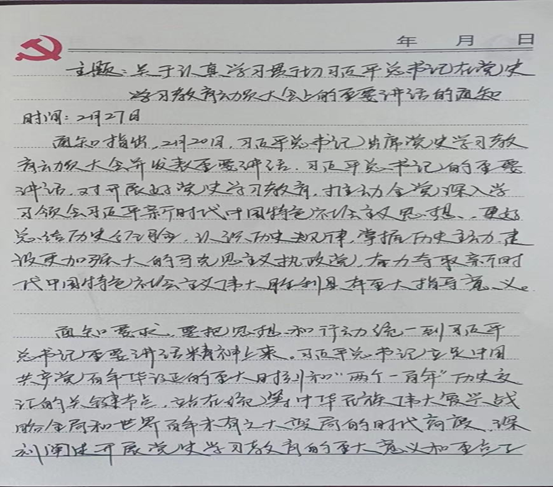 年 月 日
主题：关于认真学习贯彻习近平总书记在党史
学习教育动员大会上的重要讲话的通知
时间：2月27日
通知指出，2月20日，习近平总书记出席党史学习教
育动员大会并发表重要讲话，习近平总书记的重要
讲话，对开展好党史学习教育，推动全党深入学
习领会习近平新时代中国特色社会主义思想、更好
总结历史经验，认识历史规律，掌握历史主动，建
设更加强大的马克思主义执政党，奋力夺取新时
代中国特色社会主义伟大胜利具有重大指导意义。
通知要求，要把思想和行动统一到习近平
总书记重要讲话精神上来。习近平总书记立足中国
共产党百年华诞的重大时刻和“两个一百年”历史交
汇的关键节点，站在统筹中华民族伟大复兴战
略全局和世界百年未有之大变局的时代高度，深
刻阐述开展党史学习教育的重大意义和重点工